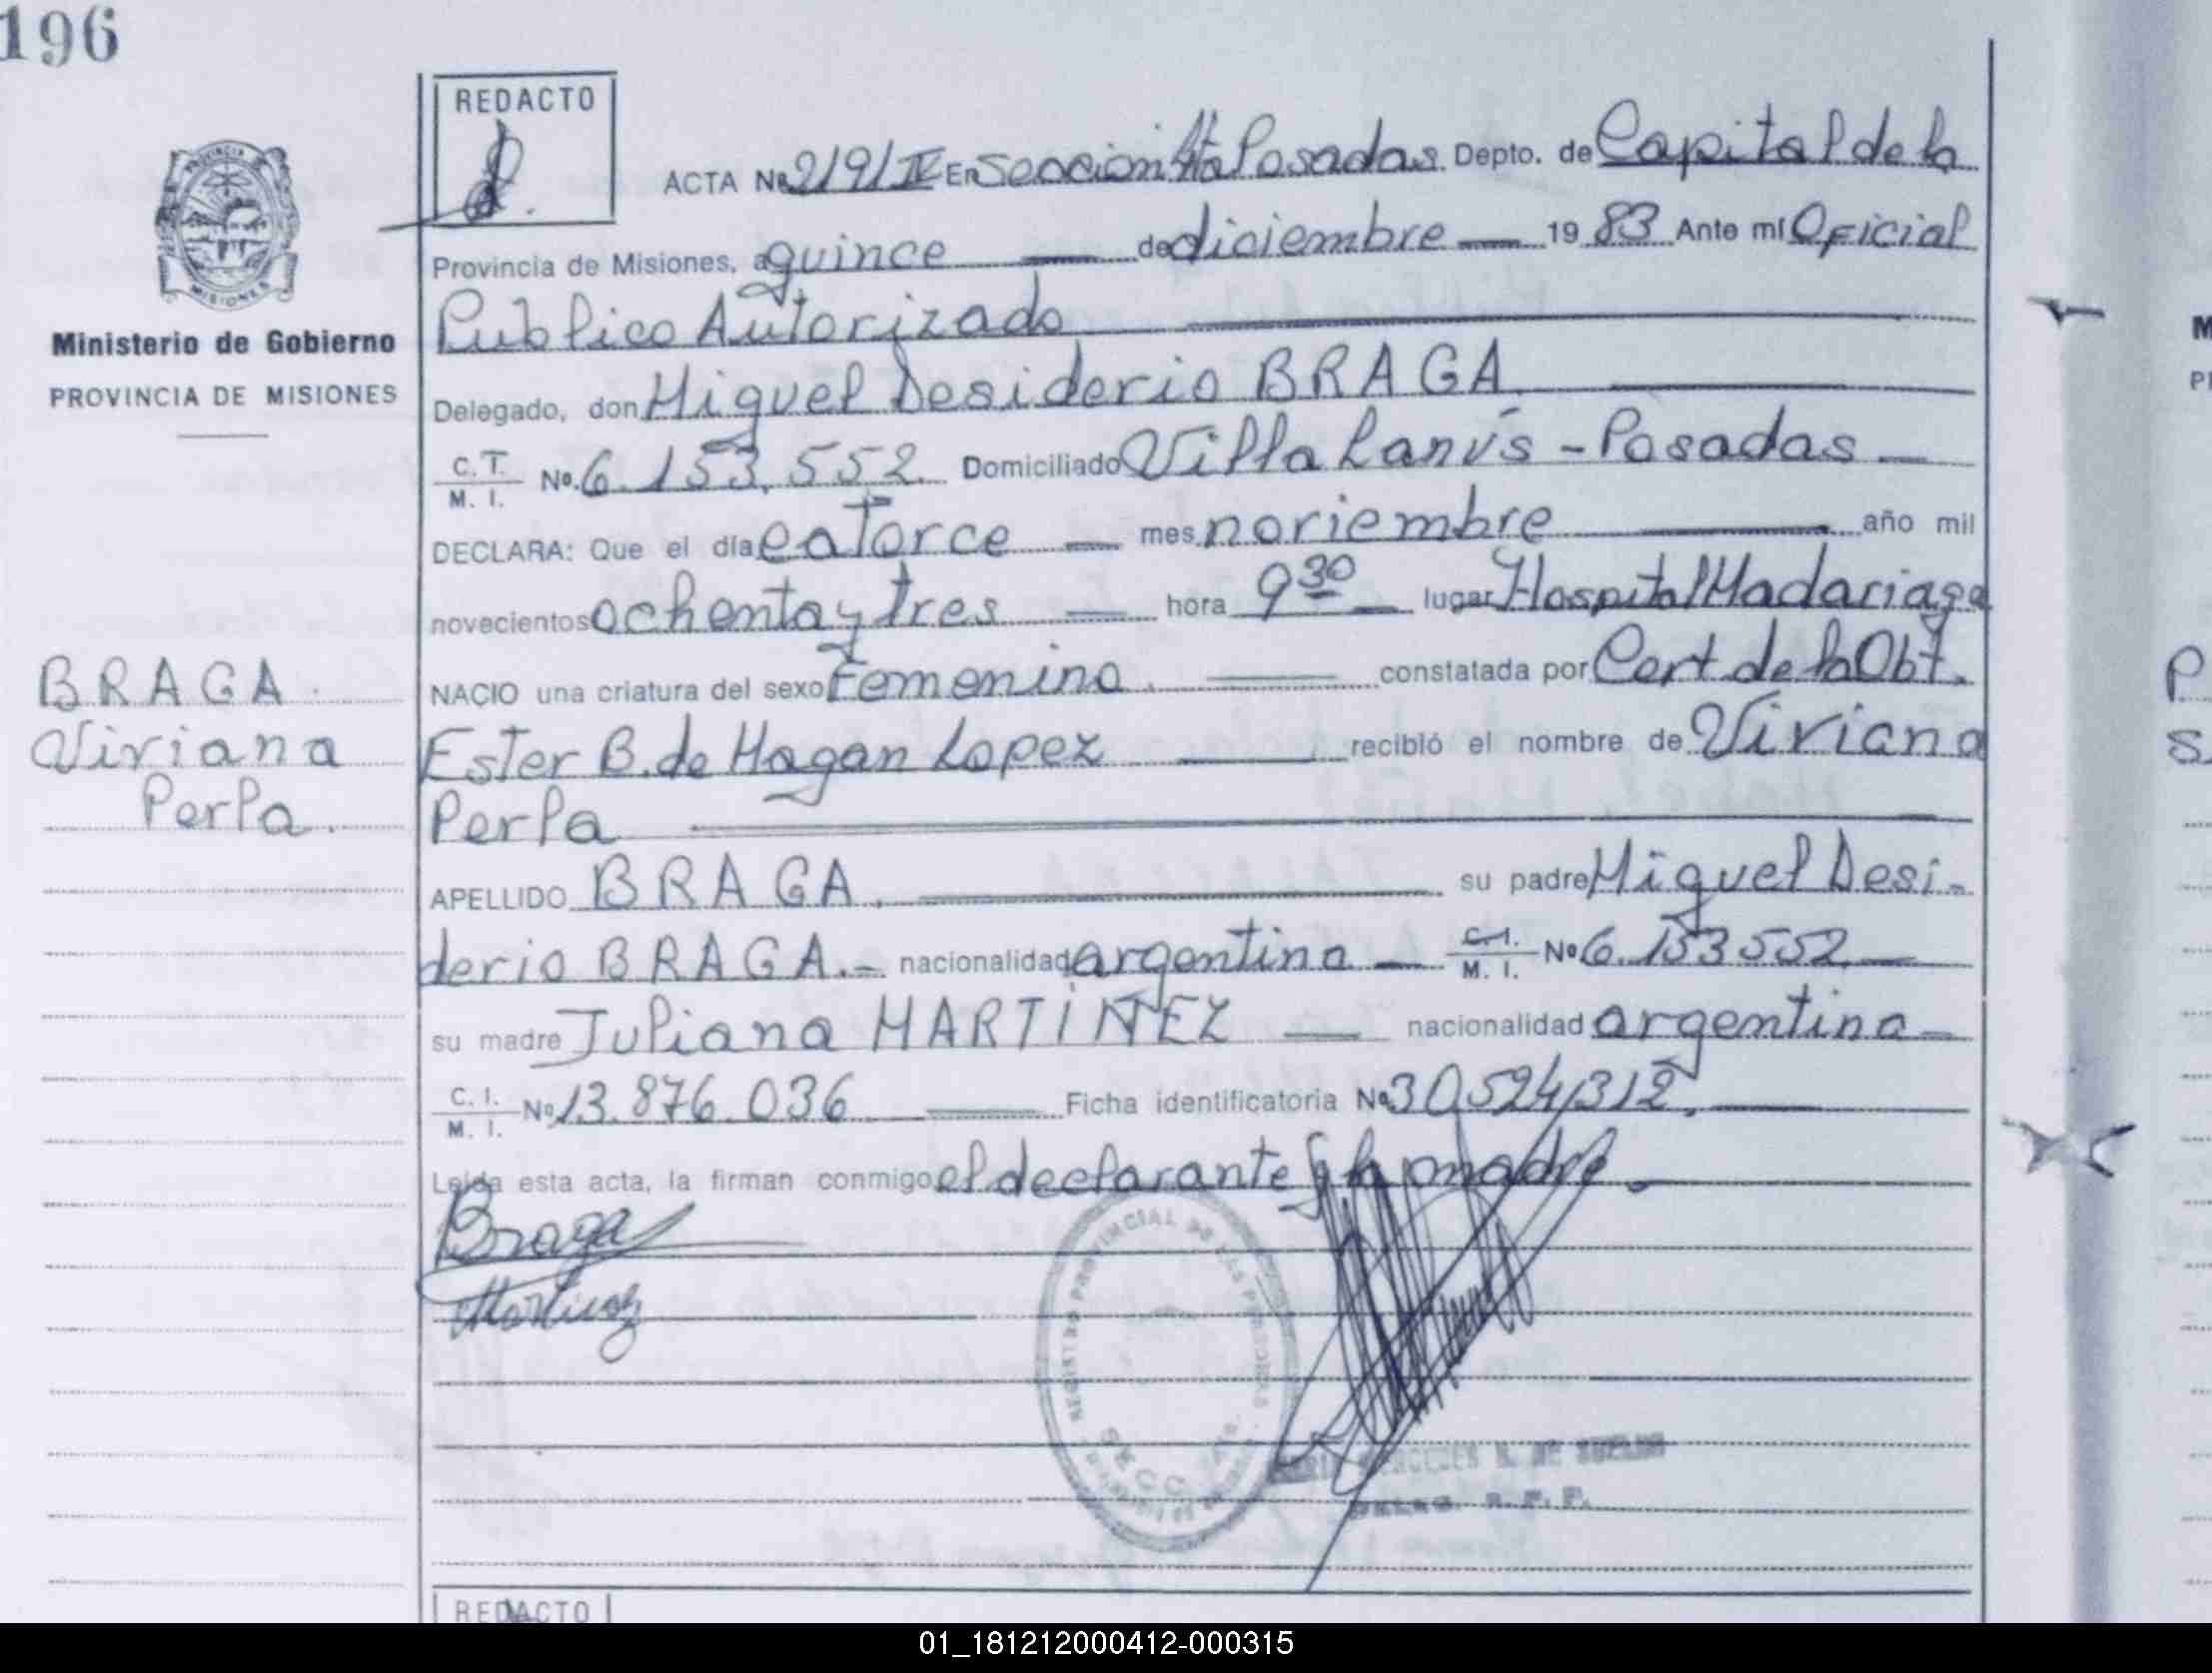 196
REDACTO
ACTA Nº 2191 IV En Sección 4ta Posadas Depto. de Capital de la
Provincia de Misiones, a quince de diciembre 1983 Ante mí Oficial
Publico Autorizado
Ministerio de Gobierno
PROVINCIA DE MISIONES
Delegado, don Miguel Desiderio BRAGA
C.T. M. I. Nº. 6.153.552. Domiciliado Villa Lanús - Posadas
DECLARA: Que el día catorce mes noviembre año mil
novecientos ochenta y tres hora 9 30 lugar Hospital Madariaga
BRAGA
Viviana
Perla.
NACIO una criatura del sexo femenino. constatada por Cert. de la Obt.
Ester B. de Hagan Lopez recibió el nombre de Viviana
Perla
APELLIDO BRAGA. su padre Miguel Desi-
derio BRAGA.- nacionalidad argentina C.I. M. I. Nº 6.153.552
su madre Juliana MARTINEZ nacionalidad argentina
C. I. M. I. Nº 13.876.036 Ficha identificatoria Nº 30.524.312.
Leída esta acta, la firman conmigo el declarante y la madre.
Braga
Martinez
REGISTRO PROVINCIAL DE LAS PERSONAS
SECC.
DELEG. R. P. P.
REDACTO
01_181212000412-000315